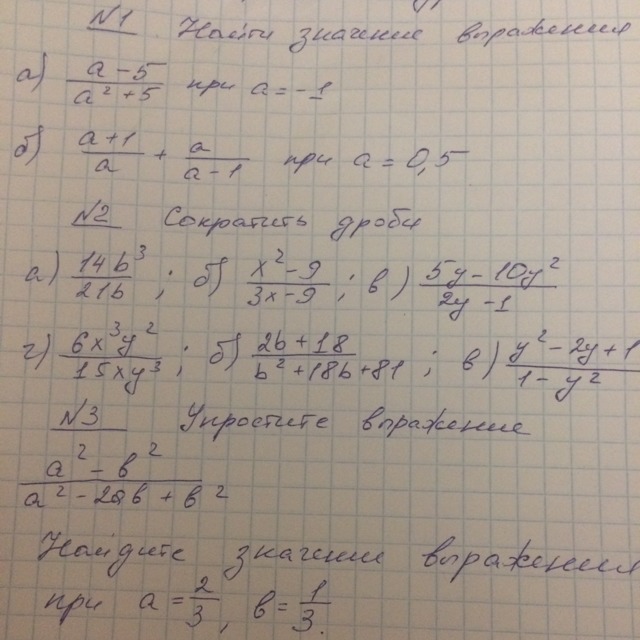 №1 Найти значение выражения
а) (a - 5)/(a² + 5) при a = -1
б) (a+1)/a + a/(a - 1) при a = 0,5
№2 Сократить дроби
а) 14b³/21b ; б) (x² - 9)/(3x - 9) ; в) (5y - 10y²)/(2y - 1)
г) 6x³y²/15xy³ ; б) (2b + 18)/(b² + 18b + 81) ; в) (y² - 2y + 1)/(1 - y²)
№3 Упростите выражение
(a² - b²)/(a² - 2ab + b²)
Найдите значение выражения
при a = 2/3, b = 1/3.